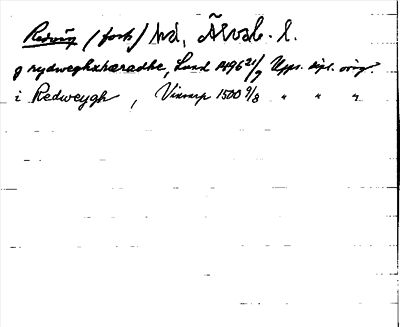 Redväg (fork) hd, Älvsb. l.
g rydweghxhæradhe, Lund 1496 21/9 Upps. dipl. orig.
i Redweygh, Vixarp 1500 9/8 " " "